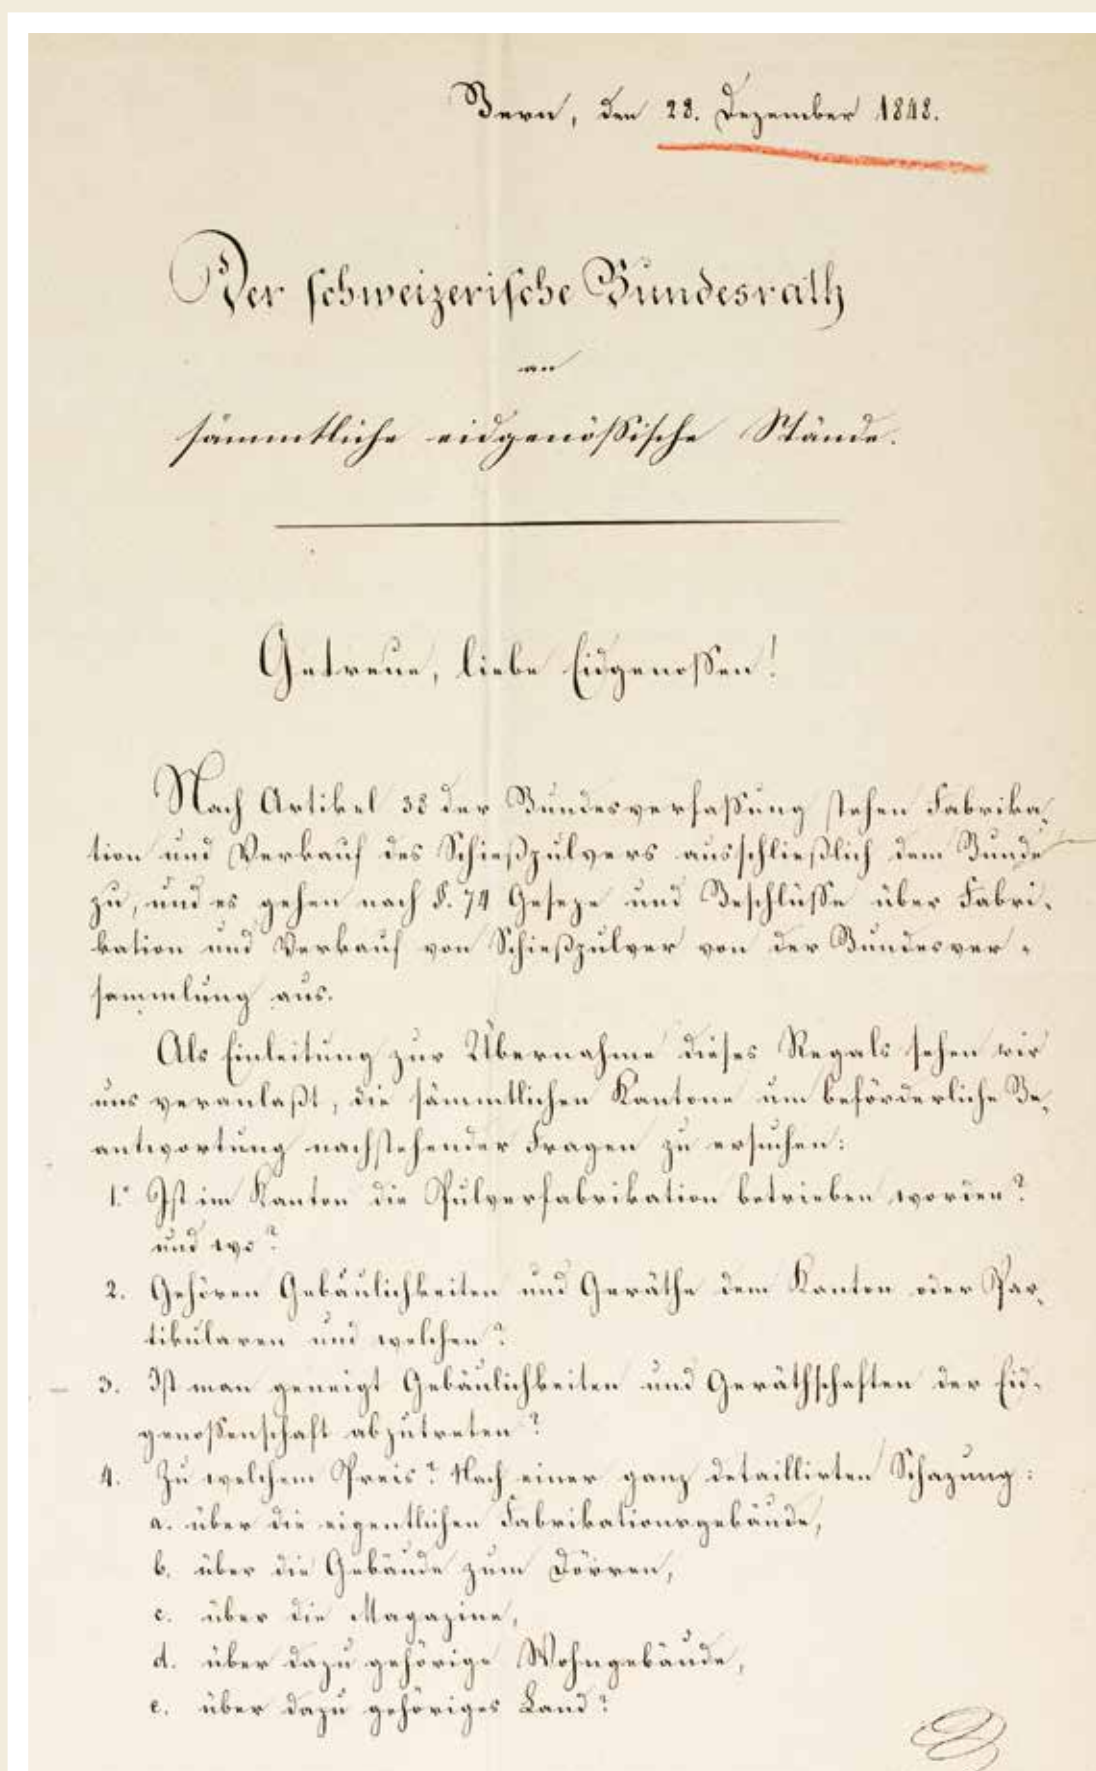 Bern, den 28. Dezember 1848.
Der schweizerische Bundesrath
an
sämmtliche eidgenößische Stände.
Getreue, liebe Eidgenossen!
Nach Artikel 38 der Bundesverfaßung stehen Fabrika-
tion und Verkauf des Schießpulvers ausschließlich dem Bunde
zu, und es gehen nach §. 74 Geseze und Beschlüße über Fabri-
kation und Verkauf von Schießpulver von der Bundesver-
sammlung aus.
Als Einleitung zur Übernahme dieses Regals sehen wir
uns veranlaßt, die sämmtlichen Kantone um beförderliche Be-
antwortung nachstehender Fragen zu ersuchen:
1. Ist im Kanton die Pulverfabrikation betrieben worden?
und wo?
2. Gehören Gebäulichkeiten und Geräthe dem Kanton oder Par-
tikularen und welchen?
3. Ist man geneigt Gebäulichkeiten und Geräthschaften der Eid-
genoßenschaft abzutreten?
4. Zu welchem Preis? Nach einer ganz detaillirten Schazung:
a. über die eigentlichen Fabrikationsgebäude,
b. über die Gebäude zum Dörren,
c. über die Magazine,
d. über dazu gehörige Wohngebäude,
e. über dazu gehöriges Land?